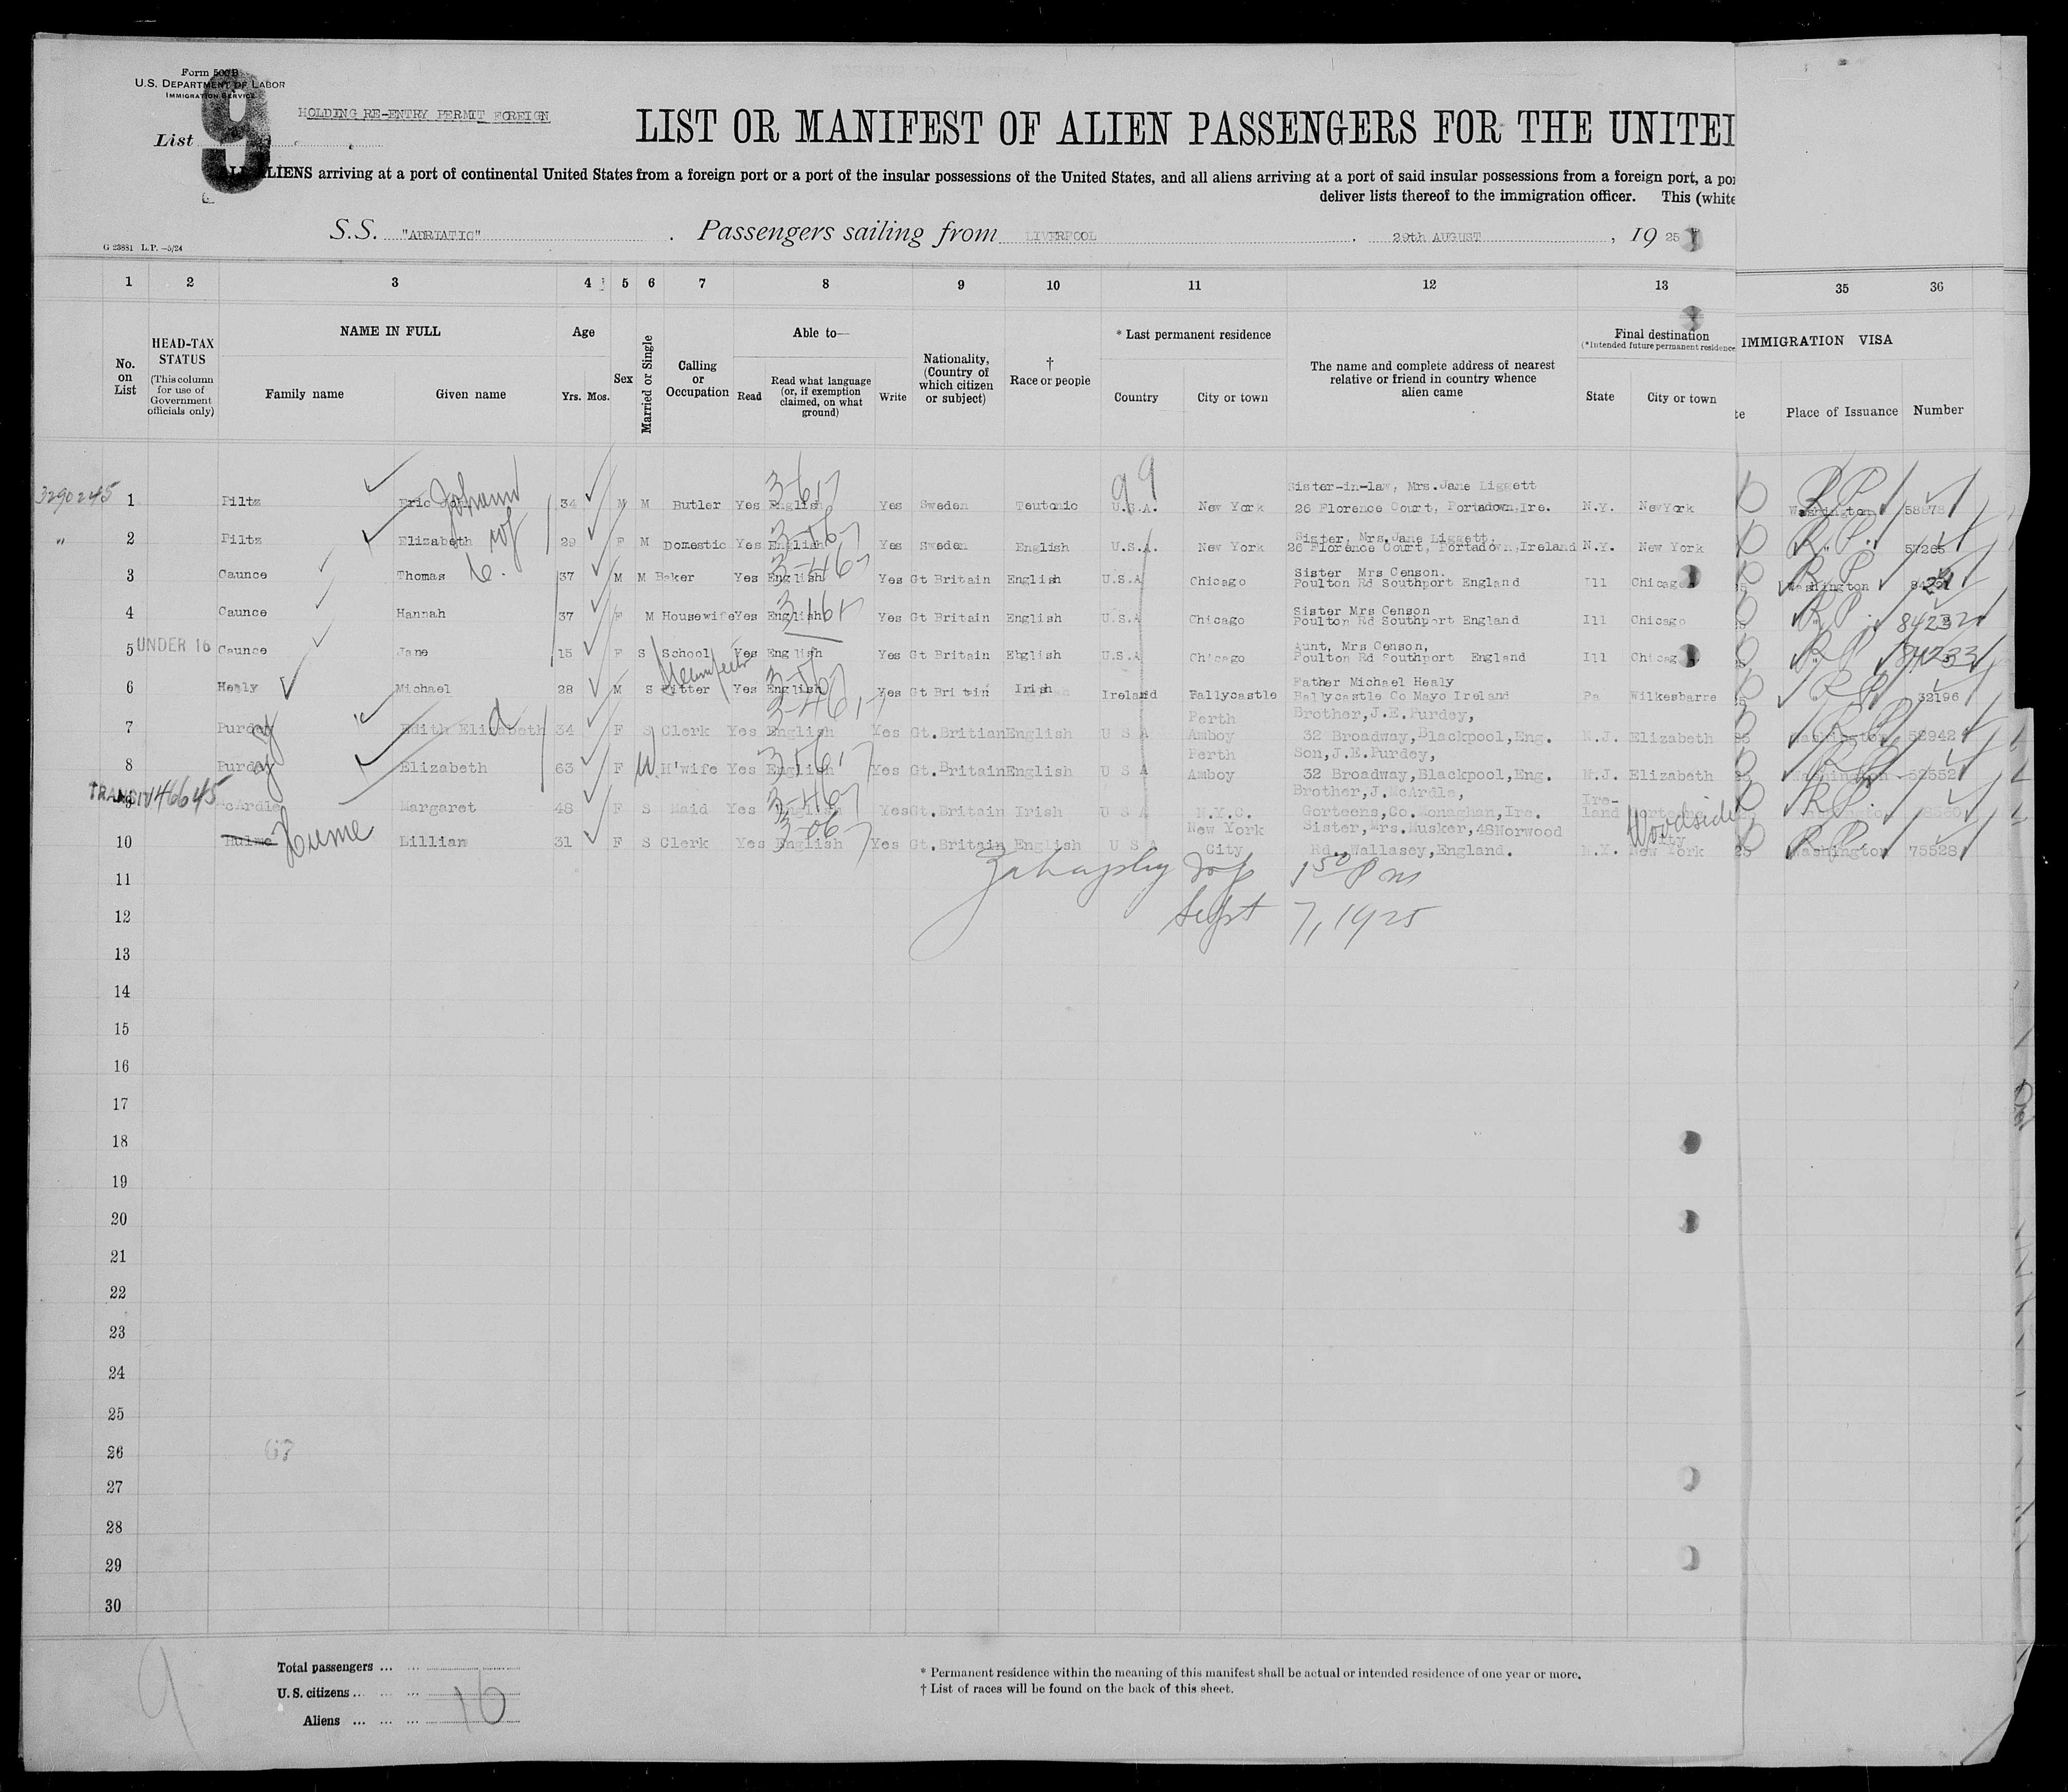 Form 500B
U.S. DEPARTMENT OF LABOR
IMMIGRATION SERVICE
9
HOLDING RE-ENTRY PERMIT FOREIGN
List
LIST OR MANIFEST OF ALIEN PASSENGERS FOR THE UNITED
ALL ALIENS arriving at a port of continental United States from a foreign port or a port of the insular possessions of the United States, and all aliens arriving at a port of said insular possessions from a foreign port, a por
deliver lists thereof to the immigration officer. This (white
S.S. "ADRIATIC" . Passengers sailing from LIVERPOOL . 29th AUGUST , 19 25
G 23881 L.P. —5/24
1 2 3 4 5 6 7 8 9 10 11 12 13 35 36
No. on List
HEAD-TAX STATUS (This column for use of Government officials only)
NAME IN FULL
Family name Given name
Age
Yrs. Mos.
Sex
Married or Single
Calling or Occupation
Able to—
Read Read what language (or, if exemption claimed, on what ground) Write
Nationality, (Country of which citizen or subject)
† Race or people
* Last permanent residence
Country City or town
The name and complete address of nearest relative or friend in country whence alien came
Final destination
(*Intended future permanent residence
State City or town
IMMIGRATION VISA
te Place of Issuance Number
3290245 1 Piltz Eric Johann 34 M M Butler Yes English Yes Sweden Teutonic U.S.A. New York Sister-in-law, Mrs.Jane Liggett
26 Florence Court, Portadown,Ire. N.Y. NewYork RP Washington 58878
" 2 Piltz Elizabeth wf 29 F M Domestic Yes English Yes Sweden English U.S.A. New York Sister, Mrs.Jane Liggett,
26 Florence Court, Portadown,Ireland N.Y. New York RP 57265
3 Caunce Thomas 37 M M Baker Yes English Yes Gt Britain English U.S.A Chicago Sister Mrs Censon.
Poulton Rd Southport England Ill Chicago RP Washington
4 Caunce Hannah 37 F M Housewife Yes English Yes Gt Britain English U.S.A Chicago Sister Mrs Censon
Poulton Rd Southport England Ill Chicago RP 84232
5 UNDER 16 Caunce Jane 15 F S School Yes English Yes Gt Britain English U.S.A Chicago Aunt, Mrs Censon,
Poulton Rd Southport England Ill Chicago RP 84233
6 Healy Michael 28 M S Fitter Yes English Yes Gt Britain Irish Ireland Ballycastle Father Michael Healy
Ballycastle Co Mayo Ireland Pa Wilkesbarre RP 32196
7 Purdey Edith Elizabeth 34 F S Clerk Yes English Yes Gt.Britian English U S A Perth Amboy Brother,J.E.Purdey,
32 Broadway,Blackpool,Eng. N.J. Elizabeth RP Washington 52942
8 Purdey Elizabeth 63 F W H'wife Yes English Yes Gt.Britain English U S A Perth Amboy Son,J.E.Purdey,
32 Broadway,Blackpool,Eng. N.J. Elizabeth RP Washington 52552
TRANSIT 146645 McArdle Margaret 48 F S Maid Yes English Yes Gt.Britain Irish U S A N.Y.C. Brother,J.McArdle,
Gorteens,Co.Monaghan,Ire. Ire-land Woodside RP
10 Hulme Hume Lillian 31 F S Clerk Yes English Yes Gt.Britain English U S A New York City Sister,Mrs.Musker,48Norwood
Rd.,Wallasey,England. N.Y. New York City RP Washington 75528
11 1 50 P m
12 Sept 7, 1925
13
14
15
16
17
18
19
20
21
22
23
24
25
26 67
27
28
29
30
9
Total passengers ... ...
U.S. citizens ... ... ...
Aliens ... ... ... 10
* Permanent residence within the meaning of this manifest shall be actual or intended residence of one year or more.
† List of races will be found on the back of this sheet.